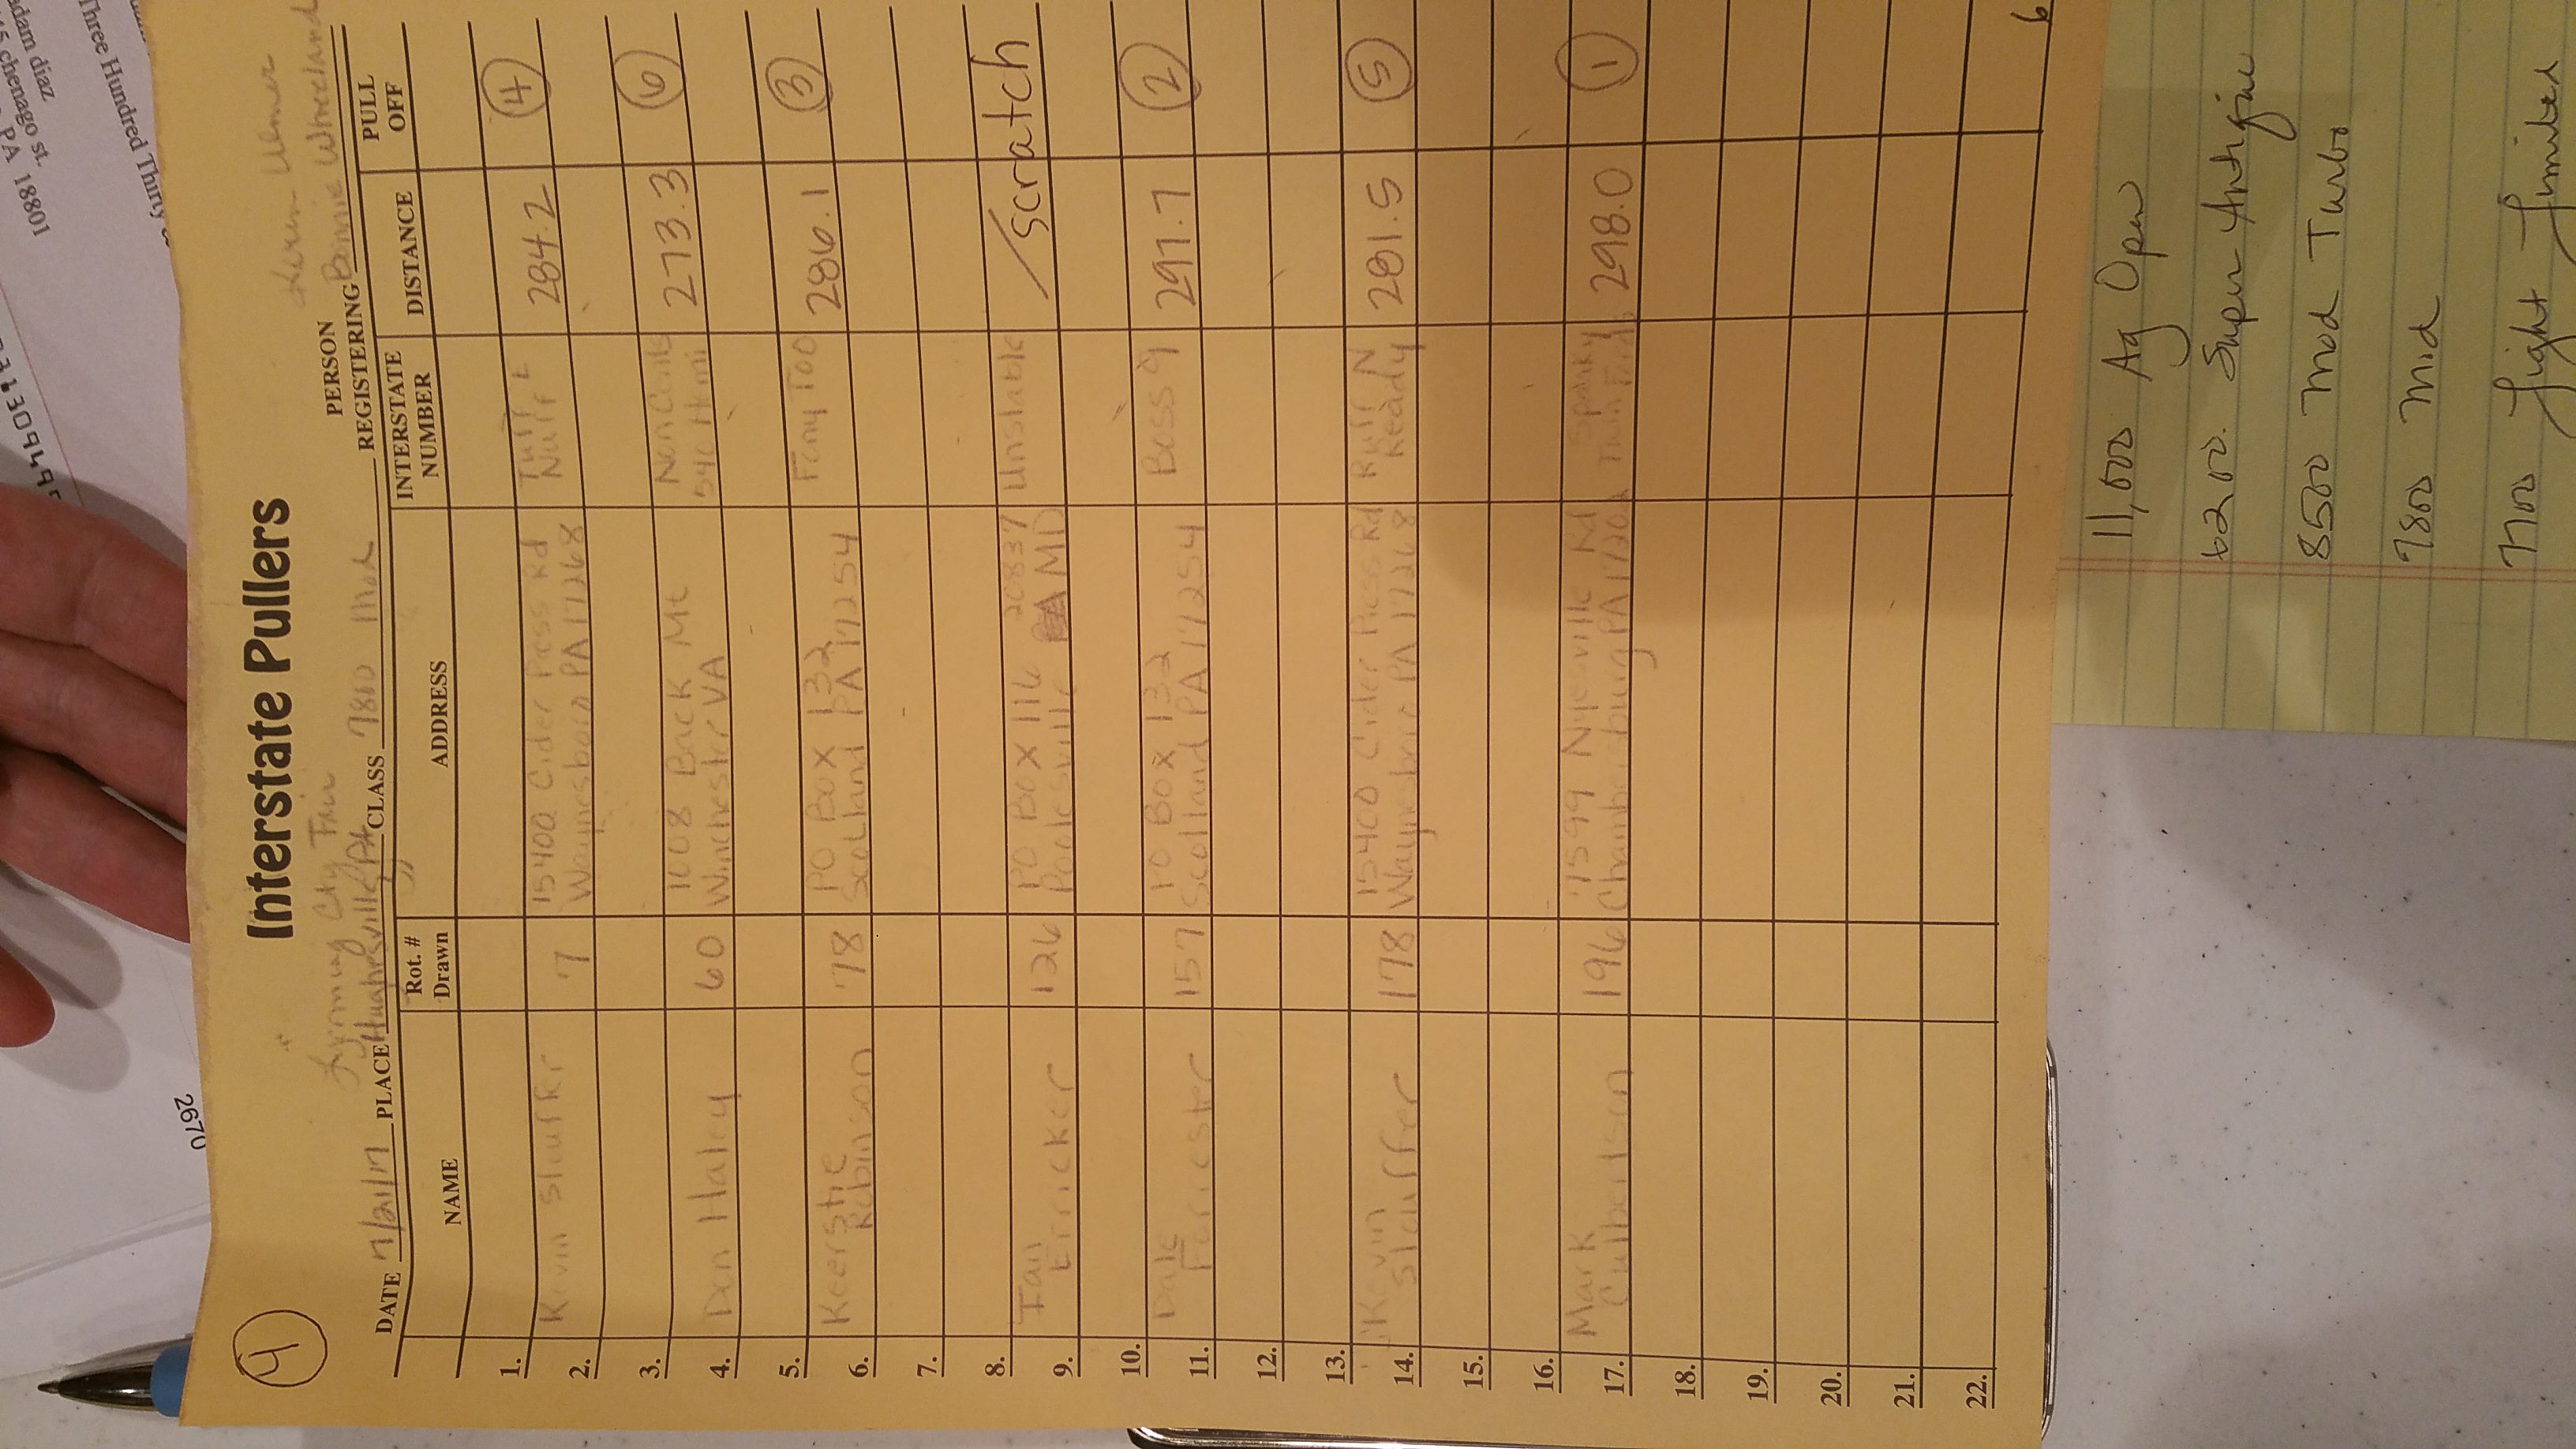 4
Interstate Pullers
Lycoming Cty Fair
Karen Ulmer
DATE 7/21/17 PLACE Hughesville, PA CLASS 7800 Mod PERSON REGISTERING Bonnie Wheeland
NAME Rot. # Drawn ADDRESS INTERSTATE NUMBER DISTANCE PULL OFF
1. Kevin Stauffer 7 15400 Cider Press Rd Tuff E Nuff 284.2 4
2. Waynesboro PA 17268
3. Dan Haley 60 1008 Back Mt 273.3 6
4. Winchester VA 540 Hemi
5. Keerstie 78 PO Box 132 Fony Too 286.1 3
6. Robinson Scotland PA 17254
7.
8. Ian 126 PO Box 116 20837 Unstable scratch
9. Erricker Poolesville MD
10. Dale 157 PO Box 132 Boss 9 297.7 2
11. Forrester Scotland PA 17254
12.
13. Kevin 178 15400 Cider Press Rd Ruff N 281.5 5
14. Stauffer Waynesboro PA 17268 Ready
15.
16. Mark 196 1599 Nyesville Rd Sparky 298.0 1
17. Culbertson Chambersburg PA 1720 Twin
18.
19.
20.
21.
22.
6
11,000 Ag Open
6200. Super Antique
8500 Mod Turbo
7800 Mid
7700 Light Limited
2670
10881 VA
Three Hundred Thirty